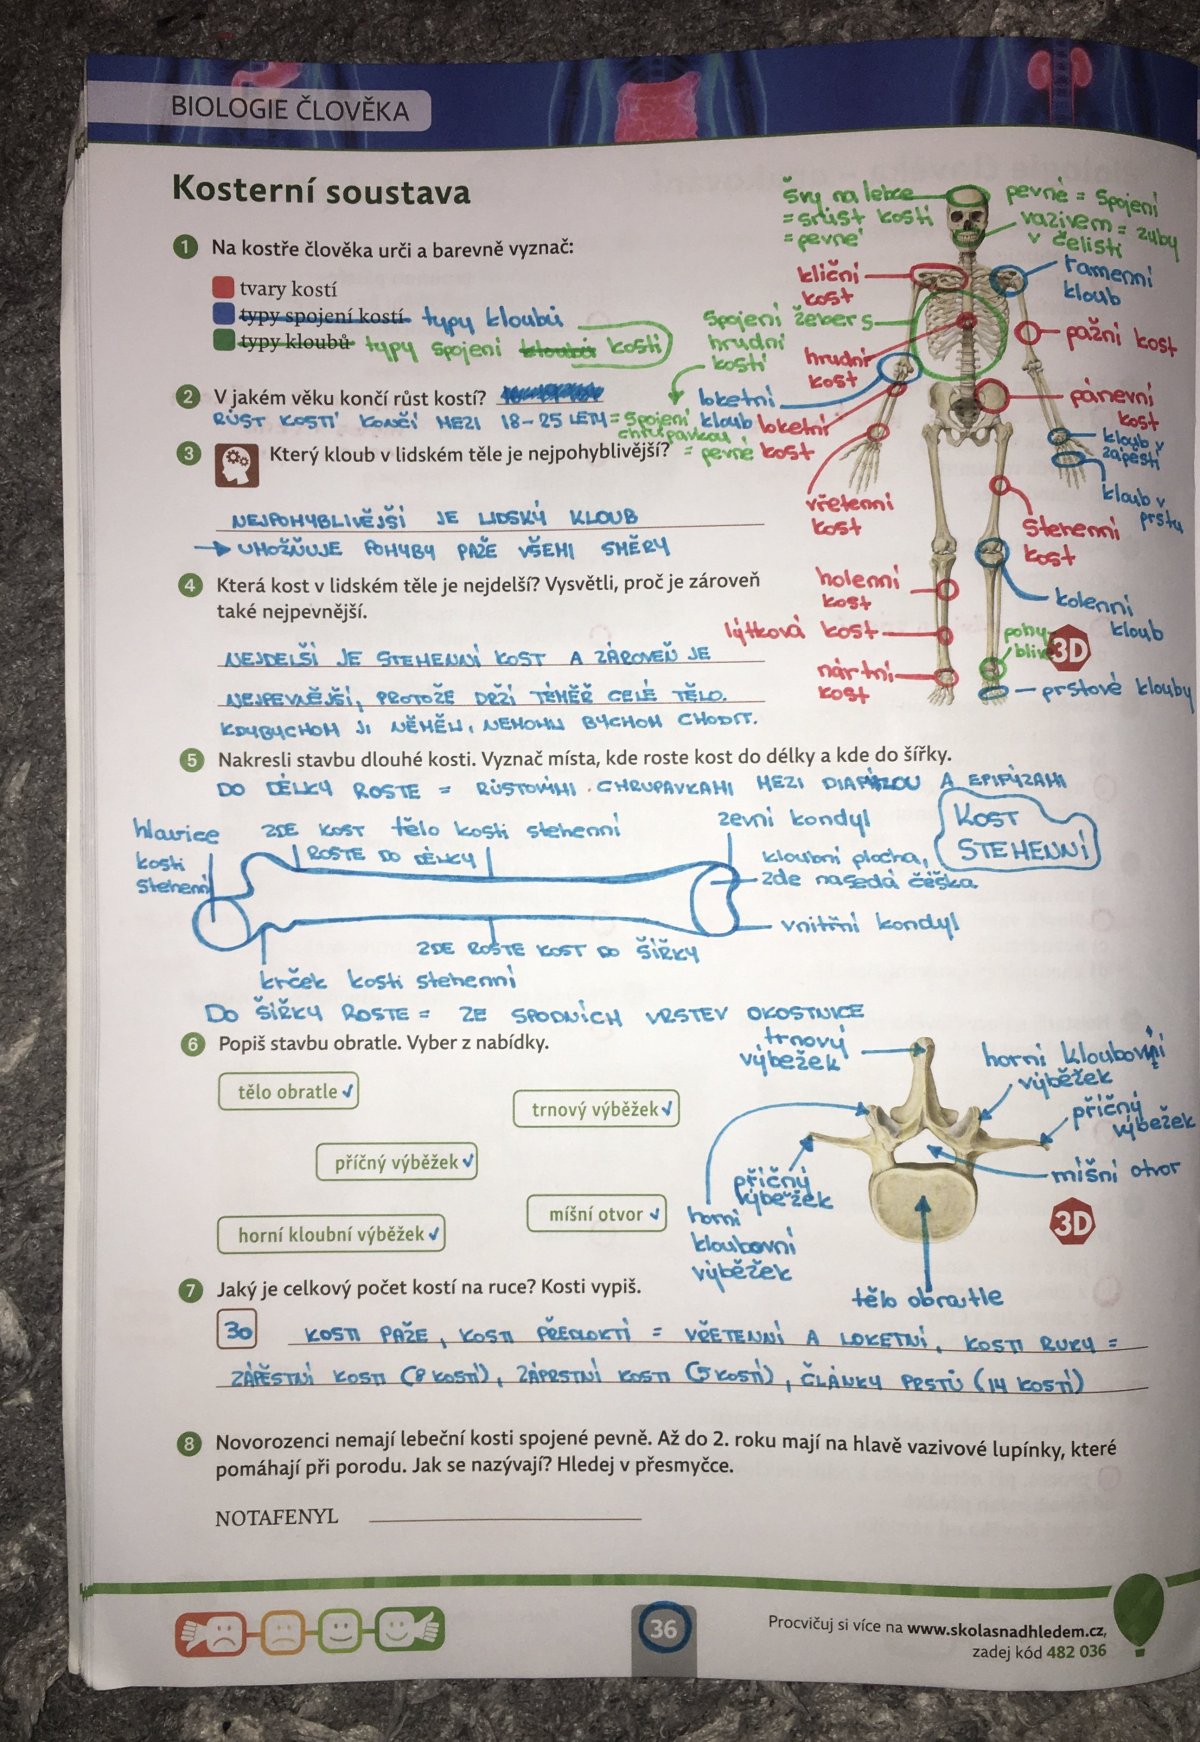 BIOLOGIE ČLOVĚKA
Kosterní soustava
1 Na kostře člověka urči a barevně vyznač:
tvary kostí
typy spojení kostí typy kloubů
typy kloubů typy spojení kloubů kostí
2 V jakém věku končí růst kostí?
RŮST KOSTÍ KONČÍ MEZI 18-25 LETY
3 Který kloub v lidském těle je nejpohyblivější?
NEJPOHYBLIVĚJŠÍ JE LIDSKÝ KLOUB
→ UMOŽŇUJE POHYBY PAŽE VŠEMI SMĚRY
4 Která kost v lidském těle je nejdelší? Vysvětli, proč je zároveň
také nejpevnější.
NEJDELŠÍ JE STEHENNÍ KOST A ZÁROVEŇ JE
NEJPEVNĚJŠÍ, PROTOŽE DRŽÍ TÉMĚŘ CELÉ TĚLO.
KDYBYCHOM JI NĚMĚLI, NEMOHLI BYCHOM CHODIT.
švy na lebce
= srůst kostí
= pevné
pevné = spojení
vazivem = zuby
v čelisti
kliční
kost
ramenní
kloub
spojení žeber s
hrudní
kostí
= spojení
chrupavkou
= pevné
pažní kost
hrudní
kost
loketní
kloub
loketní
kost
pánevní
kost
kloub v
zápěstí
kloub v
prstu
vřetenní
kost
stehenní
kost
holenní
kost
kolenní
kloub
lýtková kost
pohy-
blivé
3D
nártní
kost
prstové klouby
5 Nakresli stavbu dlouhé kosti. Vyznač místa, kde roste kost do délky a kde do šířky.
DO DÉLKY ROSTE = RŮSTOVÝMI CHRUPAVKAMI MEZI DIAFÝZOU A EPIFÝZAMI
KOST
STEHENNÍ
hlavice
kosti
stehenní
ZDE KOST
ROSTE DO DÉLKY
tělo kosti stehenní
zevní kondyl
kloubní plocha,
zde nasedá čéška
vnitřní kondyl
ZDE ROSTE KOST DO ŠÍŘKY
krček kosti stehenní
DO ŠÍŘKY ROSTE = ZE SPODNÍCH VRSTEV OKOSTNICE
6 Popiš stavbu obratle. Vyber z nabídky.
tělo obratle ✓
trnový výběžek ✓
příčný výběžek ✓
míšní otvor ✓
horní kloubní výběžek ✓
trnový
výběžek
horní kloubovní
výběžek
příčný
výběžek
míšní otvor
příčný
výběžek
horní
kloubovní
výběžek
tělo obratle
3D
7 Jaký je celkový počet kostí na ruce? Kosti vypiš.
30 KOSTI PAŽE, KOSTI PŘEDLOKTÍ = VŘETENNÍ A LOKETNÍ, KOSTI RUKY =
ZÁPĚSTNÍ KOSTI (8 KOSTÍ), ZÁPRSTNÍ KOSTI (5 KOSTÍ), ČLÁNKY PRSTŮ (14 KOSTÍ)
8 Novorozenci nemají lebeční kosti spojené pevně. Až do 2. roku mají na hlavě vazivové lupínky, které
pomáhají při porodu. Jak se nazývají? Hledej v přesmyčce.
NOTAFENYL
36
Procvičuj si více na www.skolasnadhledem.cz,
zadej kód 482 036